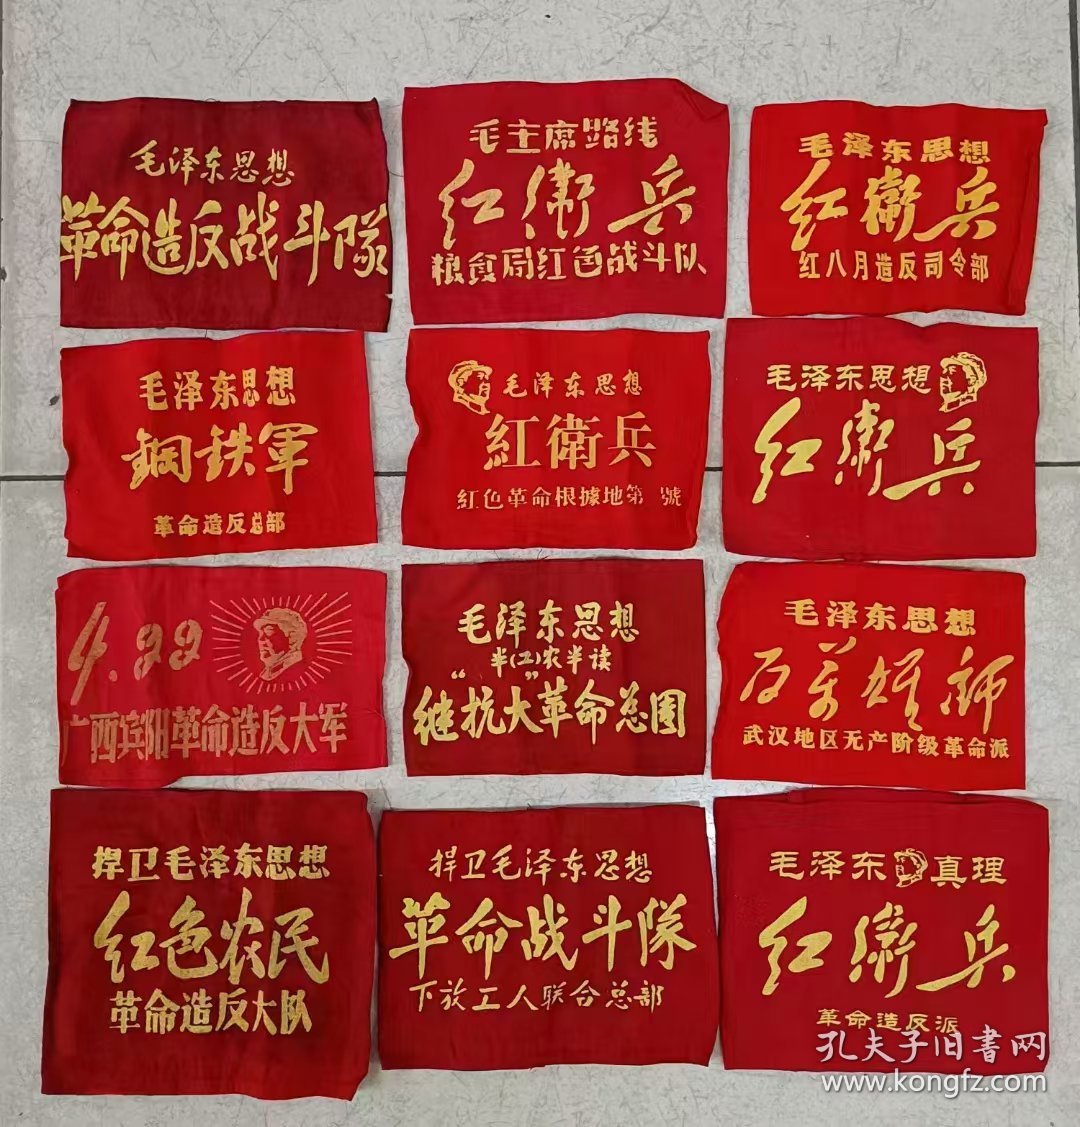 毛泽东思想
革命造反战斗隊
毛主席路线
红衛兵
粮食局红色战斗队
毛泽东思想
红衛兵
红八月造反司令部
毛泽东思想
鋼铁軍
革命造反总部
毛泽东思想
紅衛兵
红色革命根據地第 號
毛泽东思想
红衛兵
4.22
广西宾阳革命造反大军
毛泽东思想
半(工)农半读
继“抗大”革命总团
毛泽东思想
百万雄师
武汉地区无产阶级革命派
捍卫毛泽东思想
红色农民
革命造反大队
捍卫毛泽东思想
革命战斗隊
下放工人联合总部
毛泽东 真理
红衛兵
革命造反派
孔夫子旧書网
www.kongfz.com